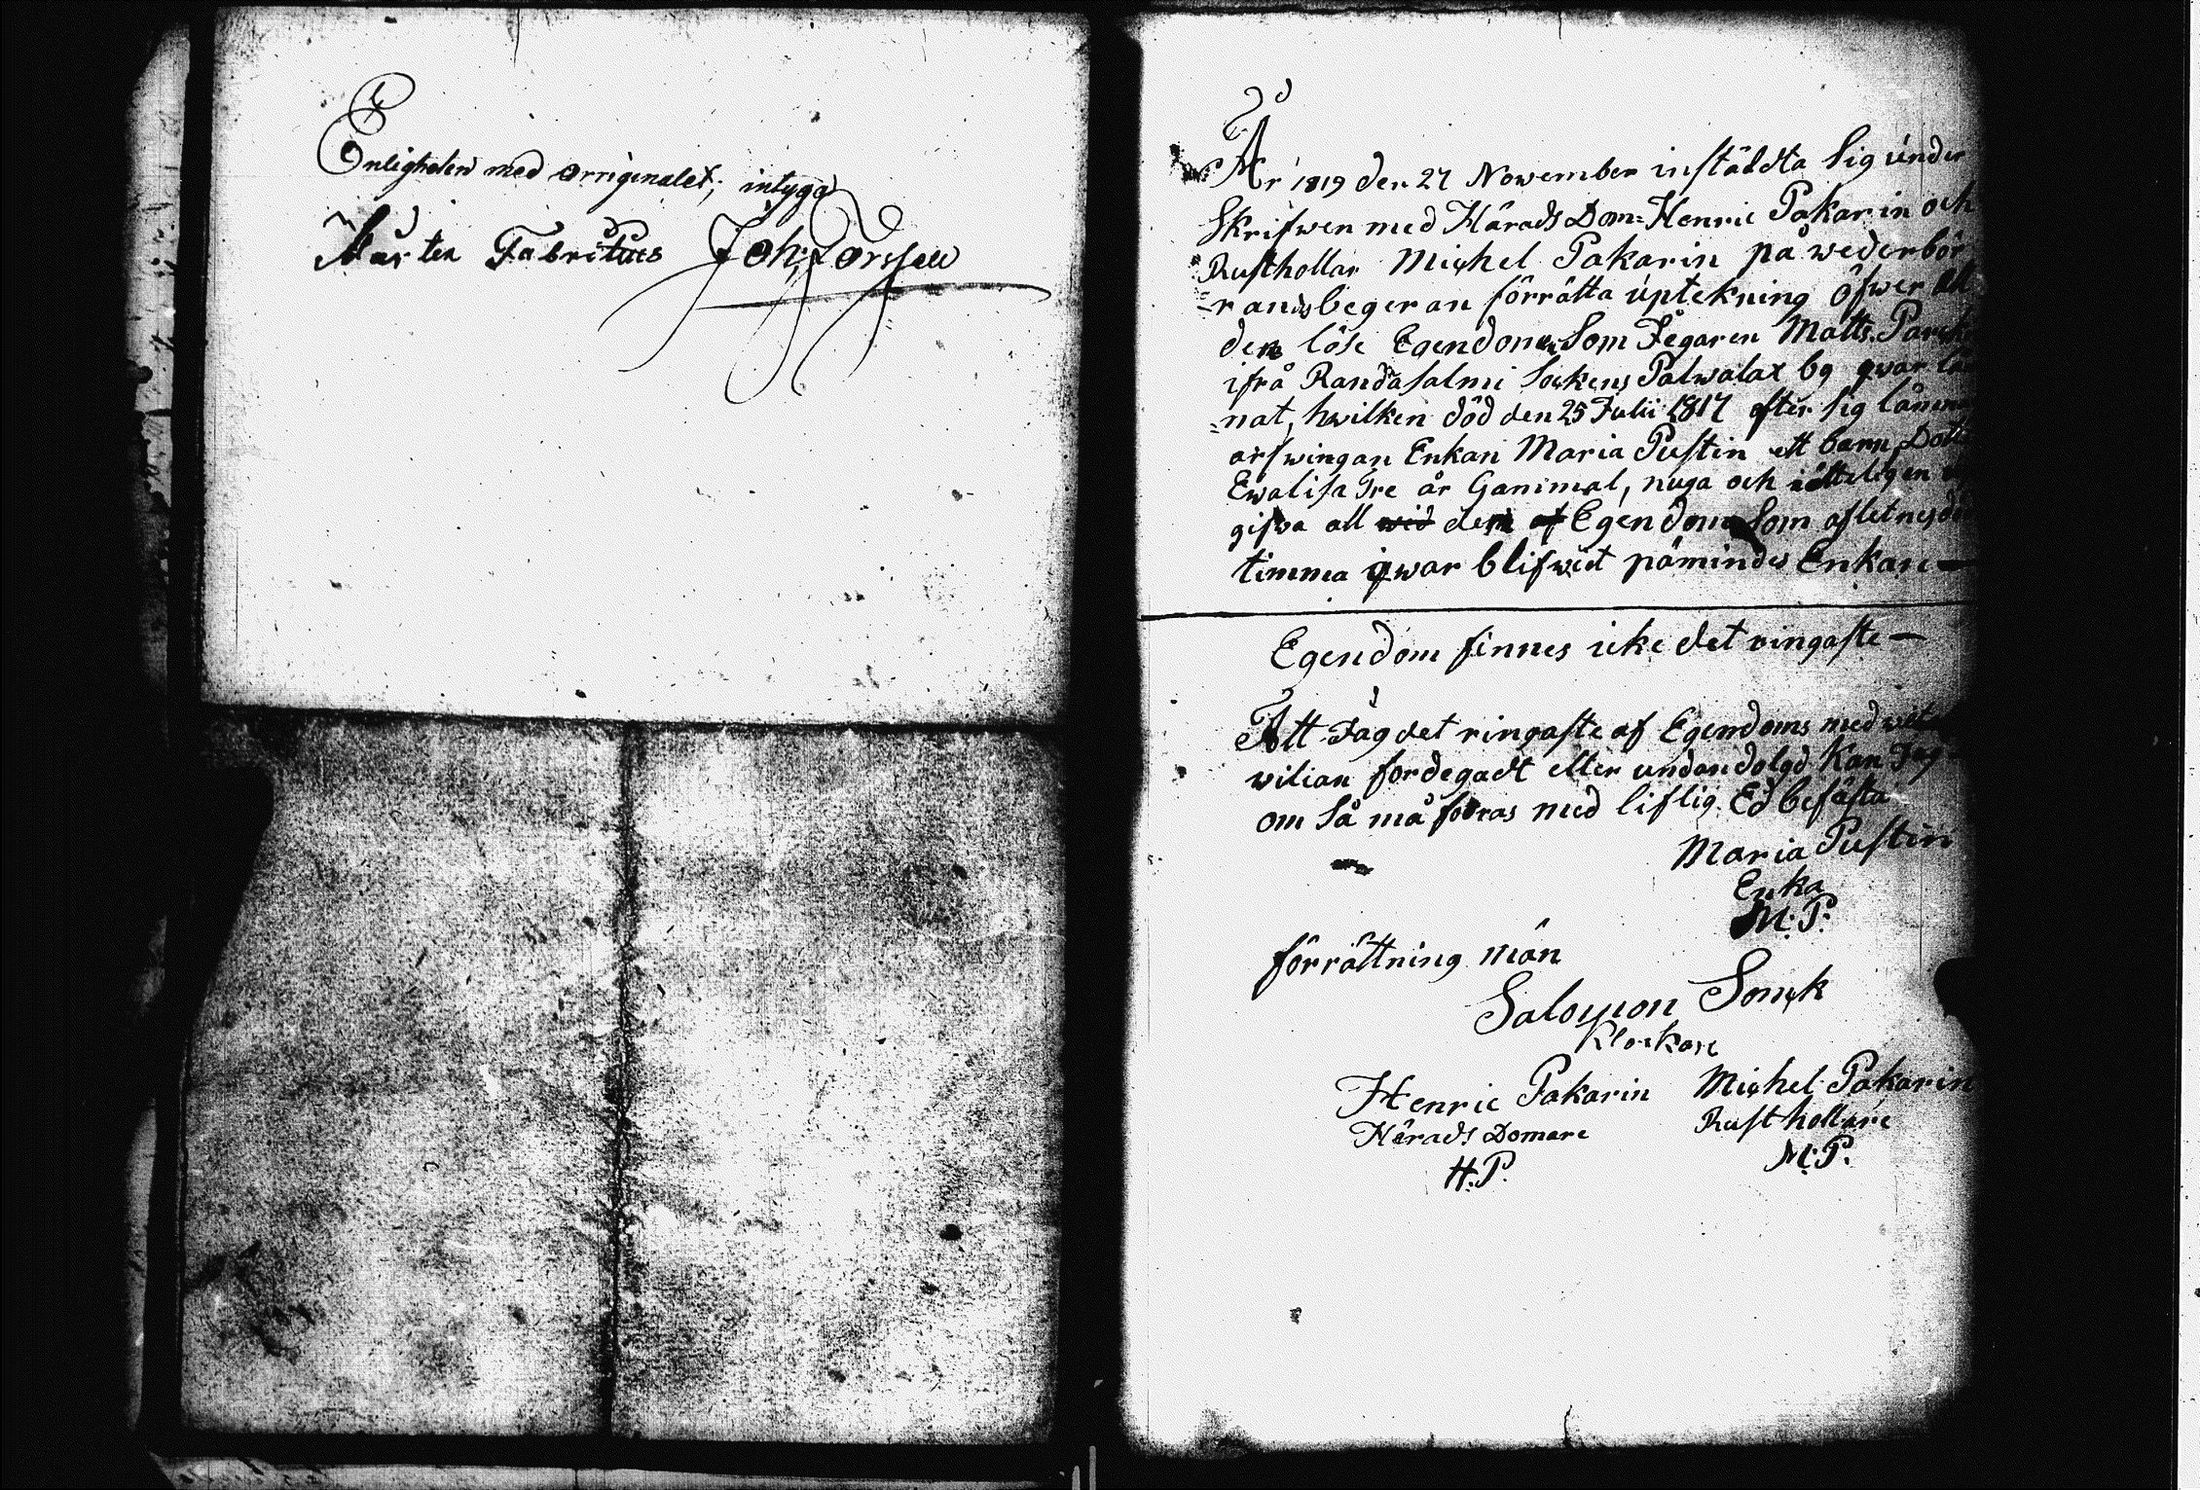 Enligheten med orriginalet; intyga
Mårten Fabritius Joh: Forssell
År 1819 den 27 November instäldta Sig under
Skrifwen med Härads Dom= Henric Pakarin och
Rusthollar Michel Pakarin på wederbör
=randsbegeran förrätta uptekning öfwer all
den löse Egendom Som Jegaren Matts
ifrå Randasalmi Sockens Palwalax by qwar
=nat, hwilken död den 25 Julii 1817 efter sig
arfwingan Enkan Maria Pustin ett barn
Ewalisa Tre år Gammal, nuga och
gifwa all wid dem af Egendom Som afletnes
timma qwar blifwit påmindes Enkan —
Egendom finnes icke det ringaste —
Att Jag det ringaste af Egendoms med
wilian fördegadt eller undandolgd Kan Jag
om Så må fodras med liflig Ed befästa
Maria Pustin
Enka
M. P.
förrättning män
Salomon Sonck
Klockare
Henric Pakarin Michel Pakarin
Härads Domare Rusthollare
H. P. M. P.